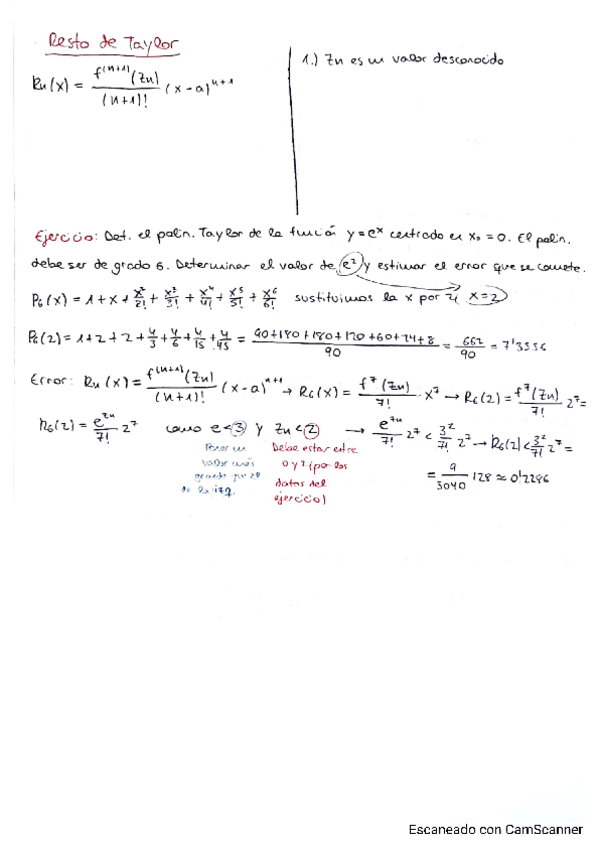 Resto de Taylor
Rn(x) = f^(n+1)(Zn) / (n+1)! (x-a)^n+1
1.) Zn es un valor desconocido
Ejercicio: Det. el polin. Taylor de la función y=e^x centrado en x₀=0. El polin.
debe ser de grado 6. Determinar el valor de e² y estimar el error que se comete.
P₆(x) = 1+x+x²/2!+x³/3!+x⁴/4!+x⁵/5!+x⁶/6! sustituimos la x por 2, x=2
P₆(2) = 1+2+2+4/3+4/6+4/15+4/45 = 90+180+180+120+60+24+8 / 90 = 662/90 = 7'3556
Error: Rn(x) = f^(n+1)(Zn) / (n+1)! (x-a)^n+1 → R₆(x) = f⁷(Zn)/7! · x⁷ → R₆(2) = f⁷(Zn)/7! 2⁷ =
R₆(2) = e^Zn/7! 2⁷ como e<3 y Zn<2 → e^Zn/7! 2⁷ < 3²/7! 2⁷ → R₆(2) < 3²/7! 2⁷ =
= 9/5040 128 ≈ 0'2286
Poner un
valor más
grande que el
de la izq.
Debe estar entre
0 y 2 (por los
datos del
ejercicio)
Escaneado con CamScanner